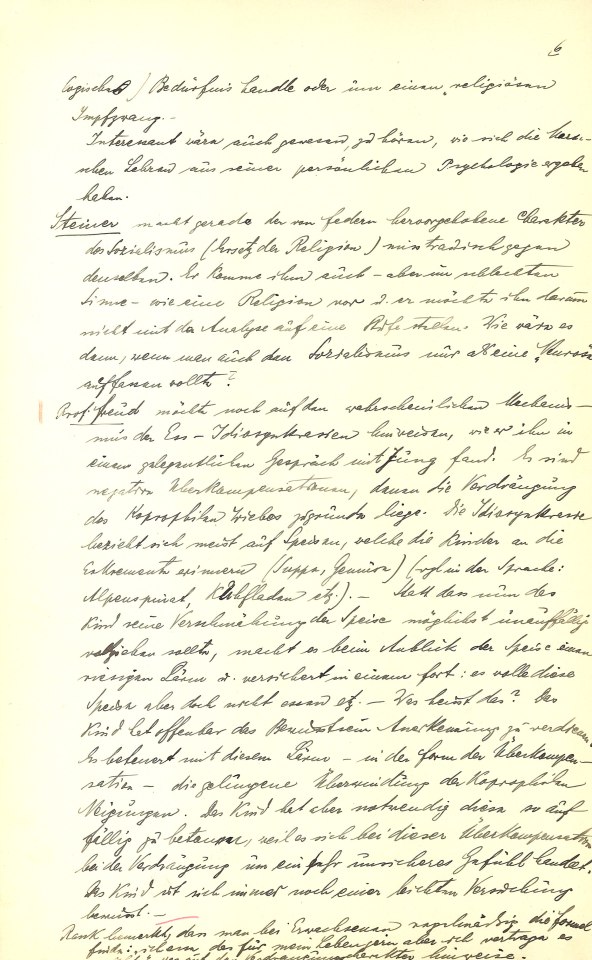 6
logisches) Bedürfnis handle oder um einen „religiösen
Impfzwang.-
Interessant wäre auch gewesen, zu hören, wie sich die
schen Lehren aus seiner persönlichen Psychologie ergeben
haben.
Steiner macht gerade der von Federn hervorgehobene Charakter
des Sozialismus (Ersatz der Religion) misstrauisch gegen
denselben. Er komme ihm auch – aber im schlechten
Sinne – wie eine Religion vor u. er möchte ihn darum
nicht mit der Analyse auf eine Stufe stellen. Wie wäre es
dann, wenn man auch den Sozialismus nur als eine „Neurose
auffassen wollte?
Prof. Freud möchte noch auf den wahrscheinlichen Mechanis-
mus der Ess-Idiosynkrasien hinweisen, wie er ihn in
einem gelegentlichen Gespräch mit Jung fand. Es sind
negative Überkompensationen, denen die Verdrängung
des koprophilen Triebes zugrunde liege. Die Idiosynkrasie
bezieht sich meist auf Speisen, welche die Kinder an die
Exkremente erinnern (Suppe, Gemüse) (vgl in der Sprache:
Alpenspinat, Kuhfladen etz.).– Statt dass nun das
Kind seine Verschmähung der Speise möglichst unauffällig
vollziehen sollte, macht es beim Anblick der Speise einen
riesigen Lärm u. versichert in einem fort: es wolle diese
Speise aber doch nicht essen etz.– Was heisst das? Das
Kind hat offenbar das Bewusstsein Anerkennung zu verdienen.
Es beteuert mit diesem Lärm – in der Form der Überkompen-
sation – die gelungene Überwindung der koprophilen
Neigungen. Das Kind hat aber notwendig diese so auf-
fällig zu betonen, weil es sich bei dieser Überkompensation
bei der Verdrängung um ein sehr unsicheres Gefühl handelt.
Das Kind ist sich immer noch einer leichten Versuchung
bewusst.–
Rank bemerkt, dass man bei Erwachsenen regelmässig die Formel
finde: ich esse das für mein Leben gern aber ich vertrage es